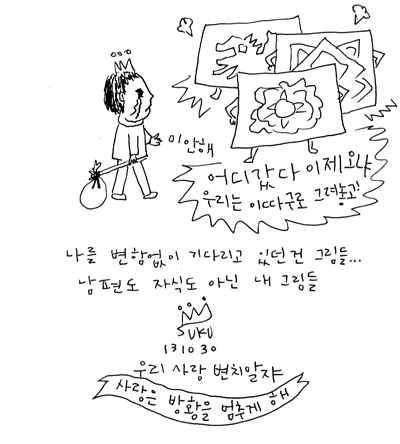 미안해
어디갔다 이제오냐
우리는 이따구로 그려놓고!
나를 변함없이 기다리고 있던건 그림들...
남편도 자식도 아닌 내 그림들
SUKU
131030
우리 사랑 변치말쟈
사랑은 방황을 멈추게 해